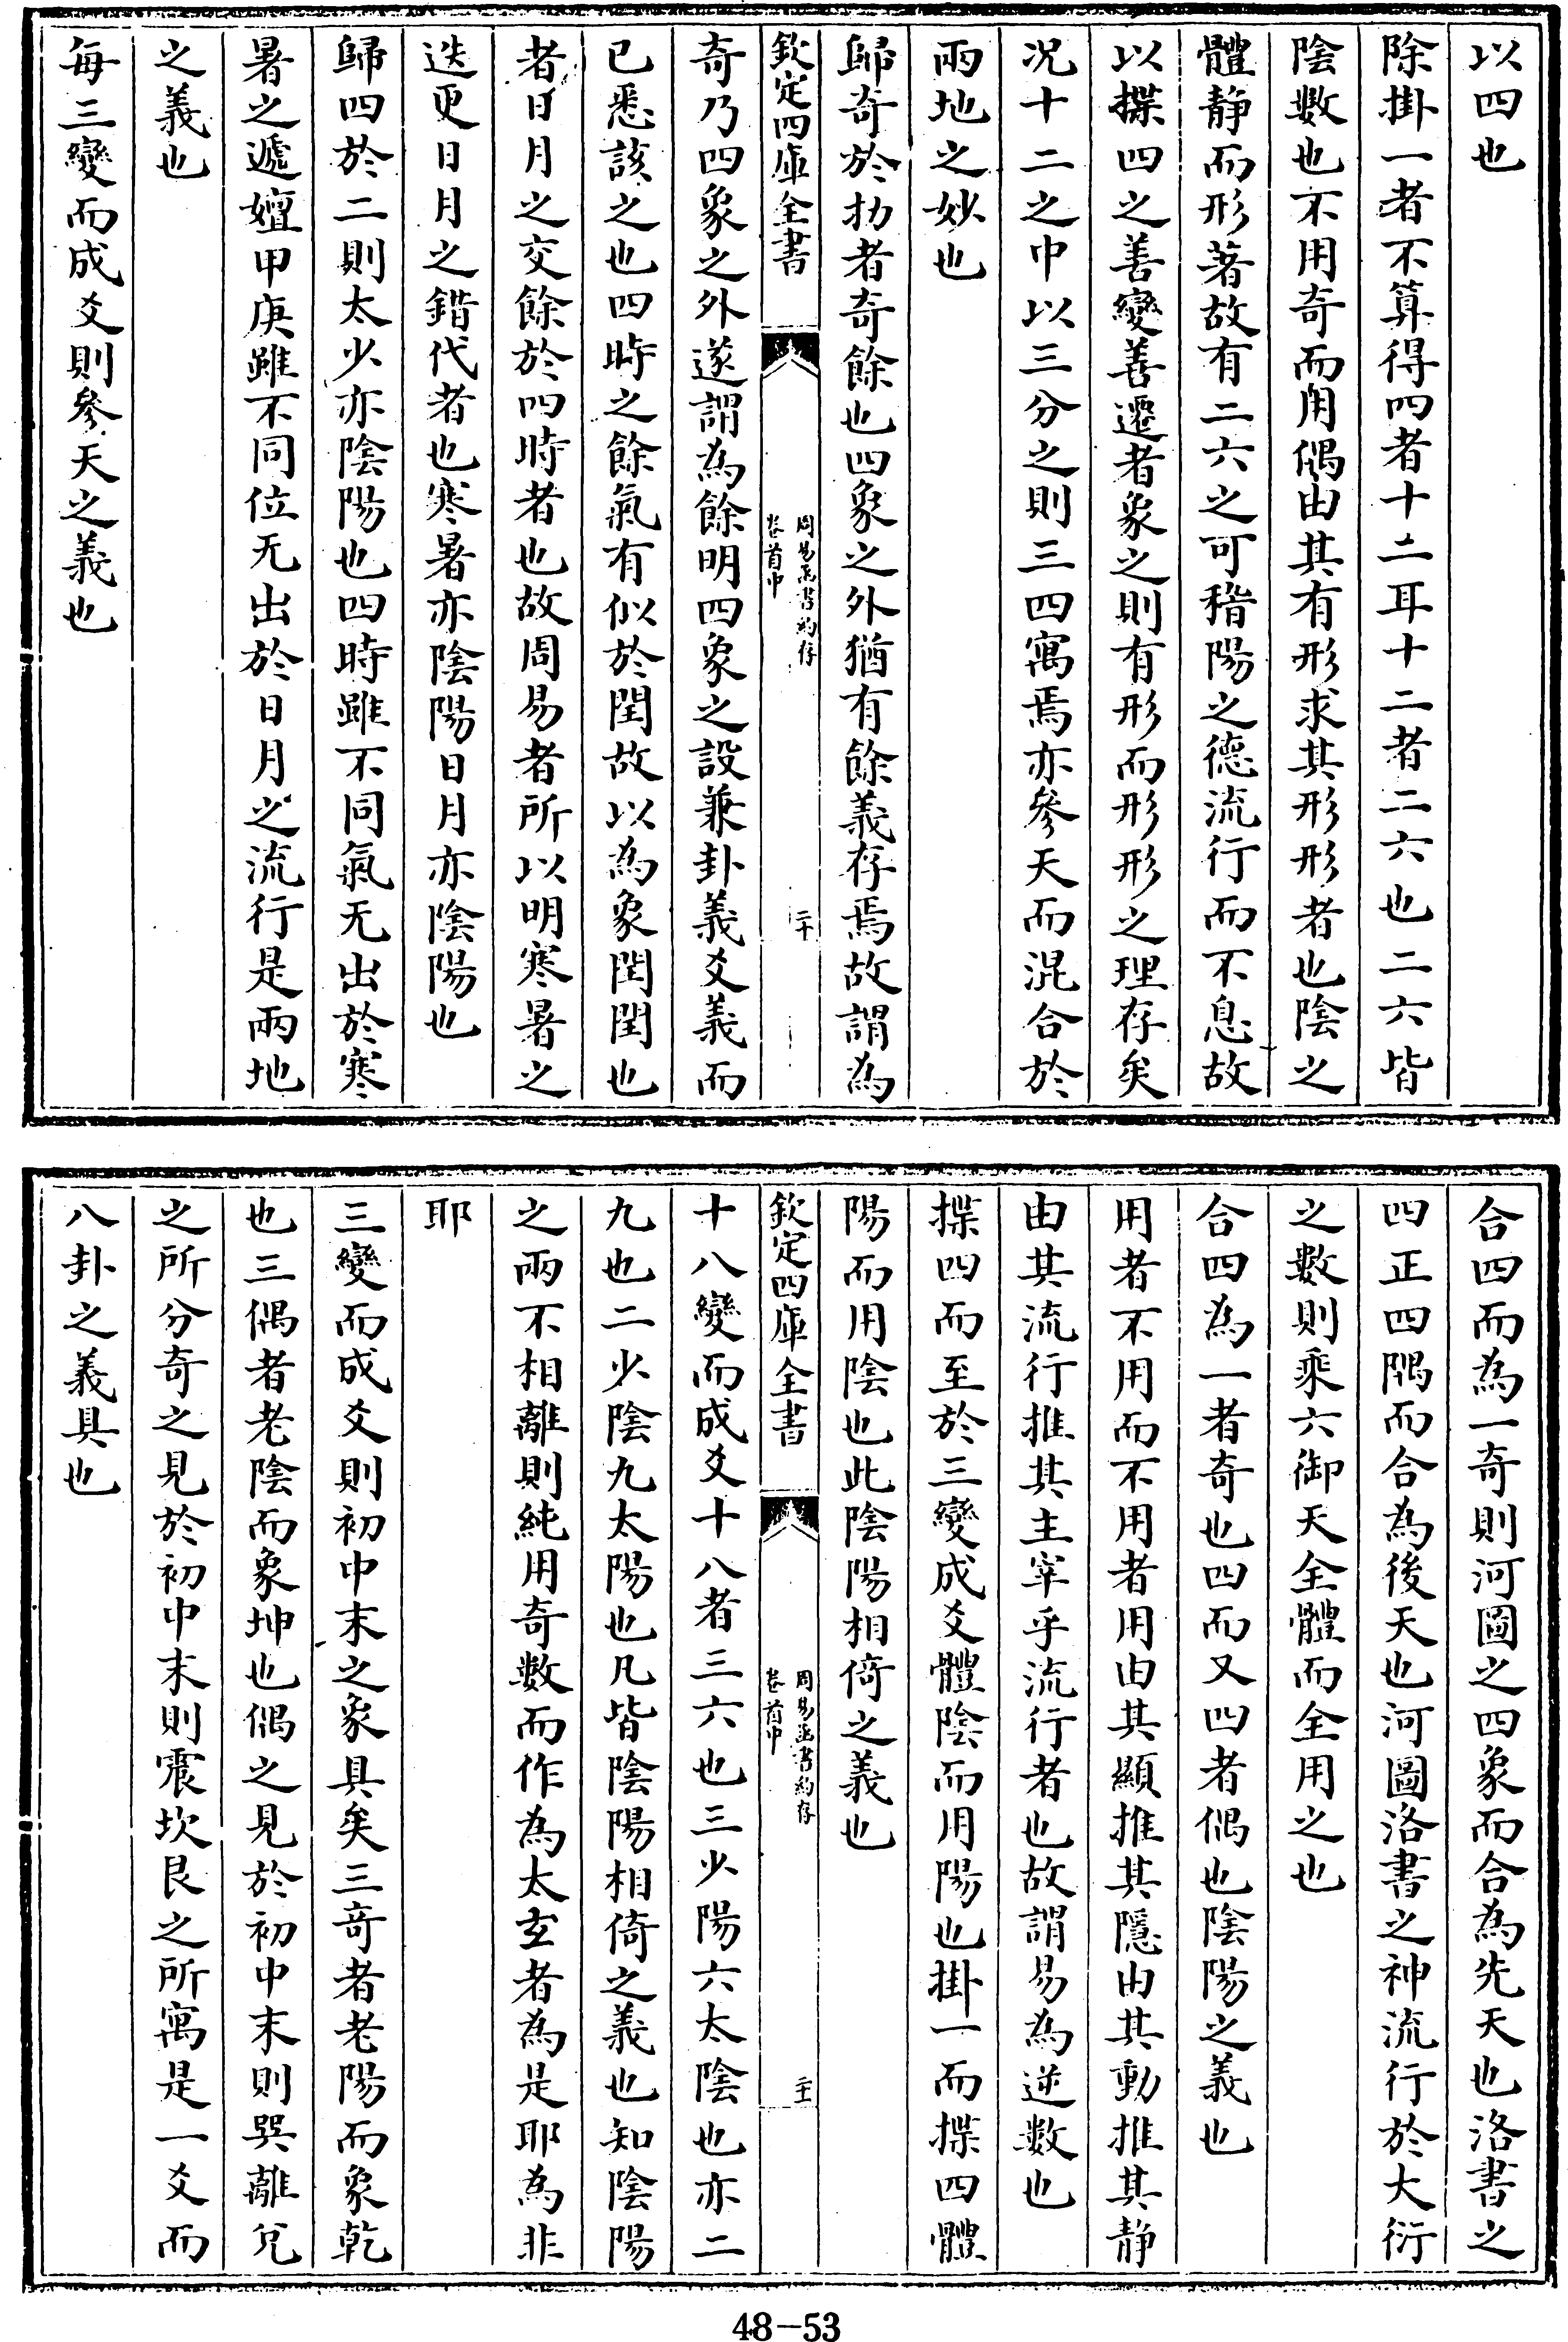 以四也
除掛一者不算得四者十二耳十二者二六也二六皆
陰數也不用奇而用偶由其有形求其形形者也陰之
體静而形著故有二六之可稽陽之德流行而不息故
以揲四之善變善遷者象之則有形而形形之理存矣
况十二之中以三分之則三四寓焉亦參天而混合於
兩地之妙也
歸奇於扐者奇餘也四象之外猶有餘義存焉故謂為
欽定四庫全書
周易函書約存
卷首中
二十
奇乃四象之外遂謂為餘明四象之設兼卦義爻義而
已悉該之也四時之餘氣有似於閏故以為象閏閏也
者日月之交餘於四時者也故周易者所以明寒暑之
迭更日月之錯代者也寒暑亦陰陽日月亦陰陽也
歸四於二則太少亦陰陽也四時雖不同氣无出於寒
暑之遞嬗甲庚雖不同位无出於日月之流行是兩地
之義也
每三變而成爻則參天之義也
合四而為一奇則河圖之四象而合為先天也洛書之
四正四隅而合為後天也河圖洛書之神流行於大衍
之數則乘六御天全體而全用之也
合四為一者奇也四而又四者偶也陰陽之義也
用者不用而不用者用由其顯推其隱由其動推其静
由其流行推其主宰乎流行者也故謂易為逆數也
揲四而至於三變成爻體陰而用陽也掛一而揲四體
陽而用陰也此陰陽相倚之義也
欽定四庫全書
周易函書約存
卷首中
二十一
十八變而成爻十八者三六也三少陽六太陰也亦二
九也二少陰九太陽也凡皆陰陽相倚之義也知陰陽
之兩不相離則純用奇數而作為太玄者為是耶為非
耶
三變而成爻則初中末之象具矣三奇者老陽而象乾
也三偶者老陰而象坤也偶之見於初中末則巽離兌
之所分奇之見於初中末則震坎艮之所寓是一爻而
八卦之義具也
48-53